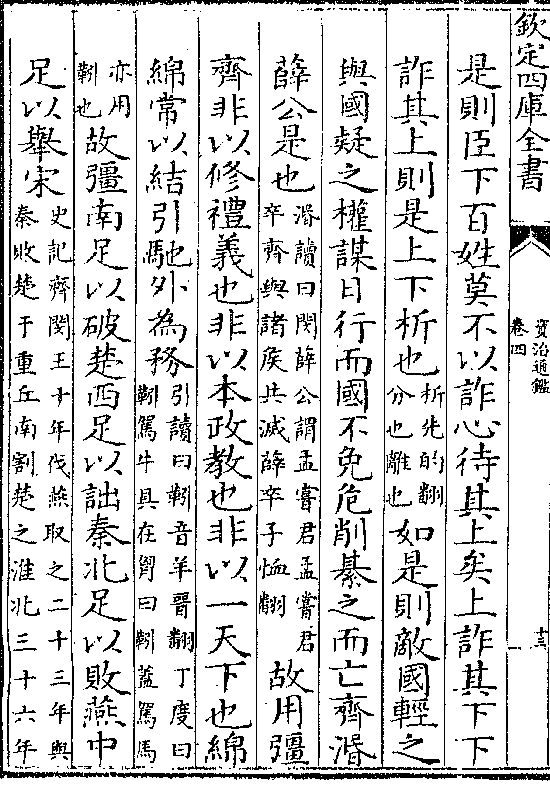 欽定四庫全書
資治通鑑
卷四
十三
是則臣下百姓莫不以詐心待其上矣上詐其下下
詐其上則是上下析也析先的翻分也離也如是則敵國輕之
與國疑之權謀日行而國不免危削綦之而亡齊湣
薛公是也湣讀曰閔薛公謂孟嘗君孟嘗君卒齊與諸侯共滅薛卒子恤翻故用彊
齊非以修禮義也非以本政教也非以一天下也綿
綿常以結引馳外為務引讀曰靷靷音羊晉翻丁度曰靷駕牛具在胷曰靷蓋駕馬
亦用靷也故彊南足以破楚西足以詘秦北足以敗燕中
足以舉宋史記齊閔王十年伐燕取之二十三年與秦敗楚于重丘南割楚之淮北三十六年